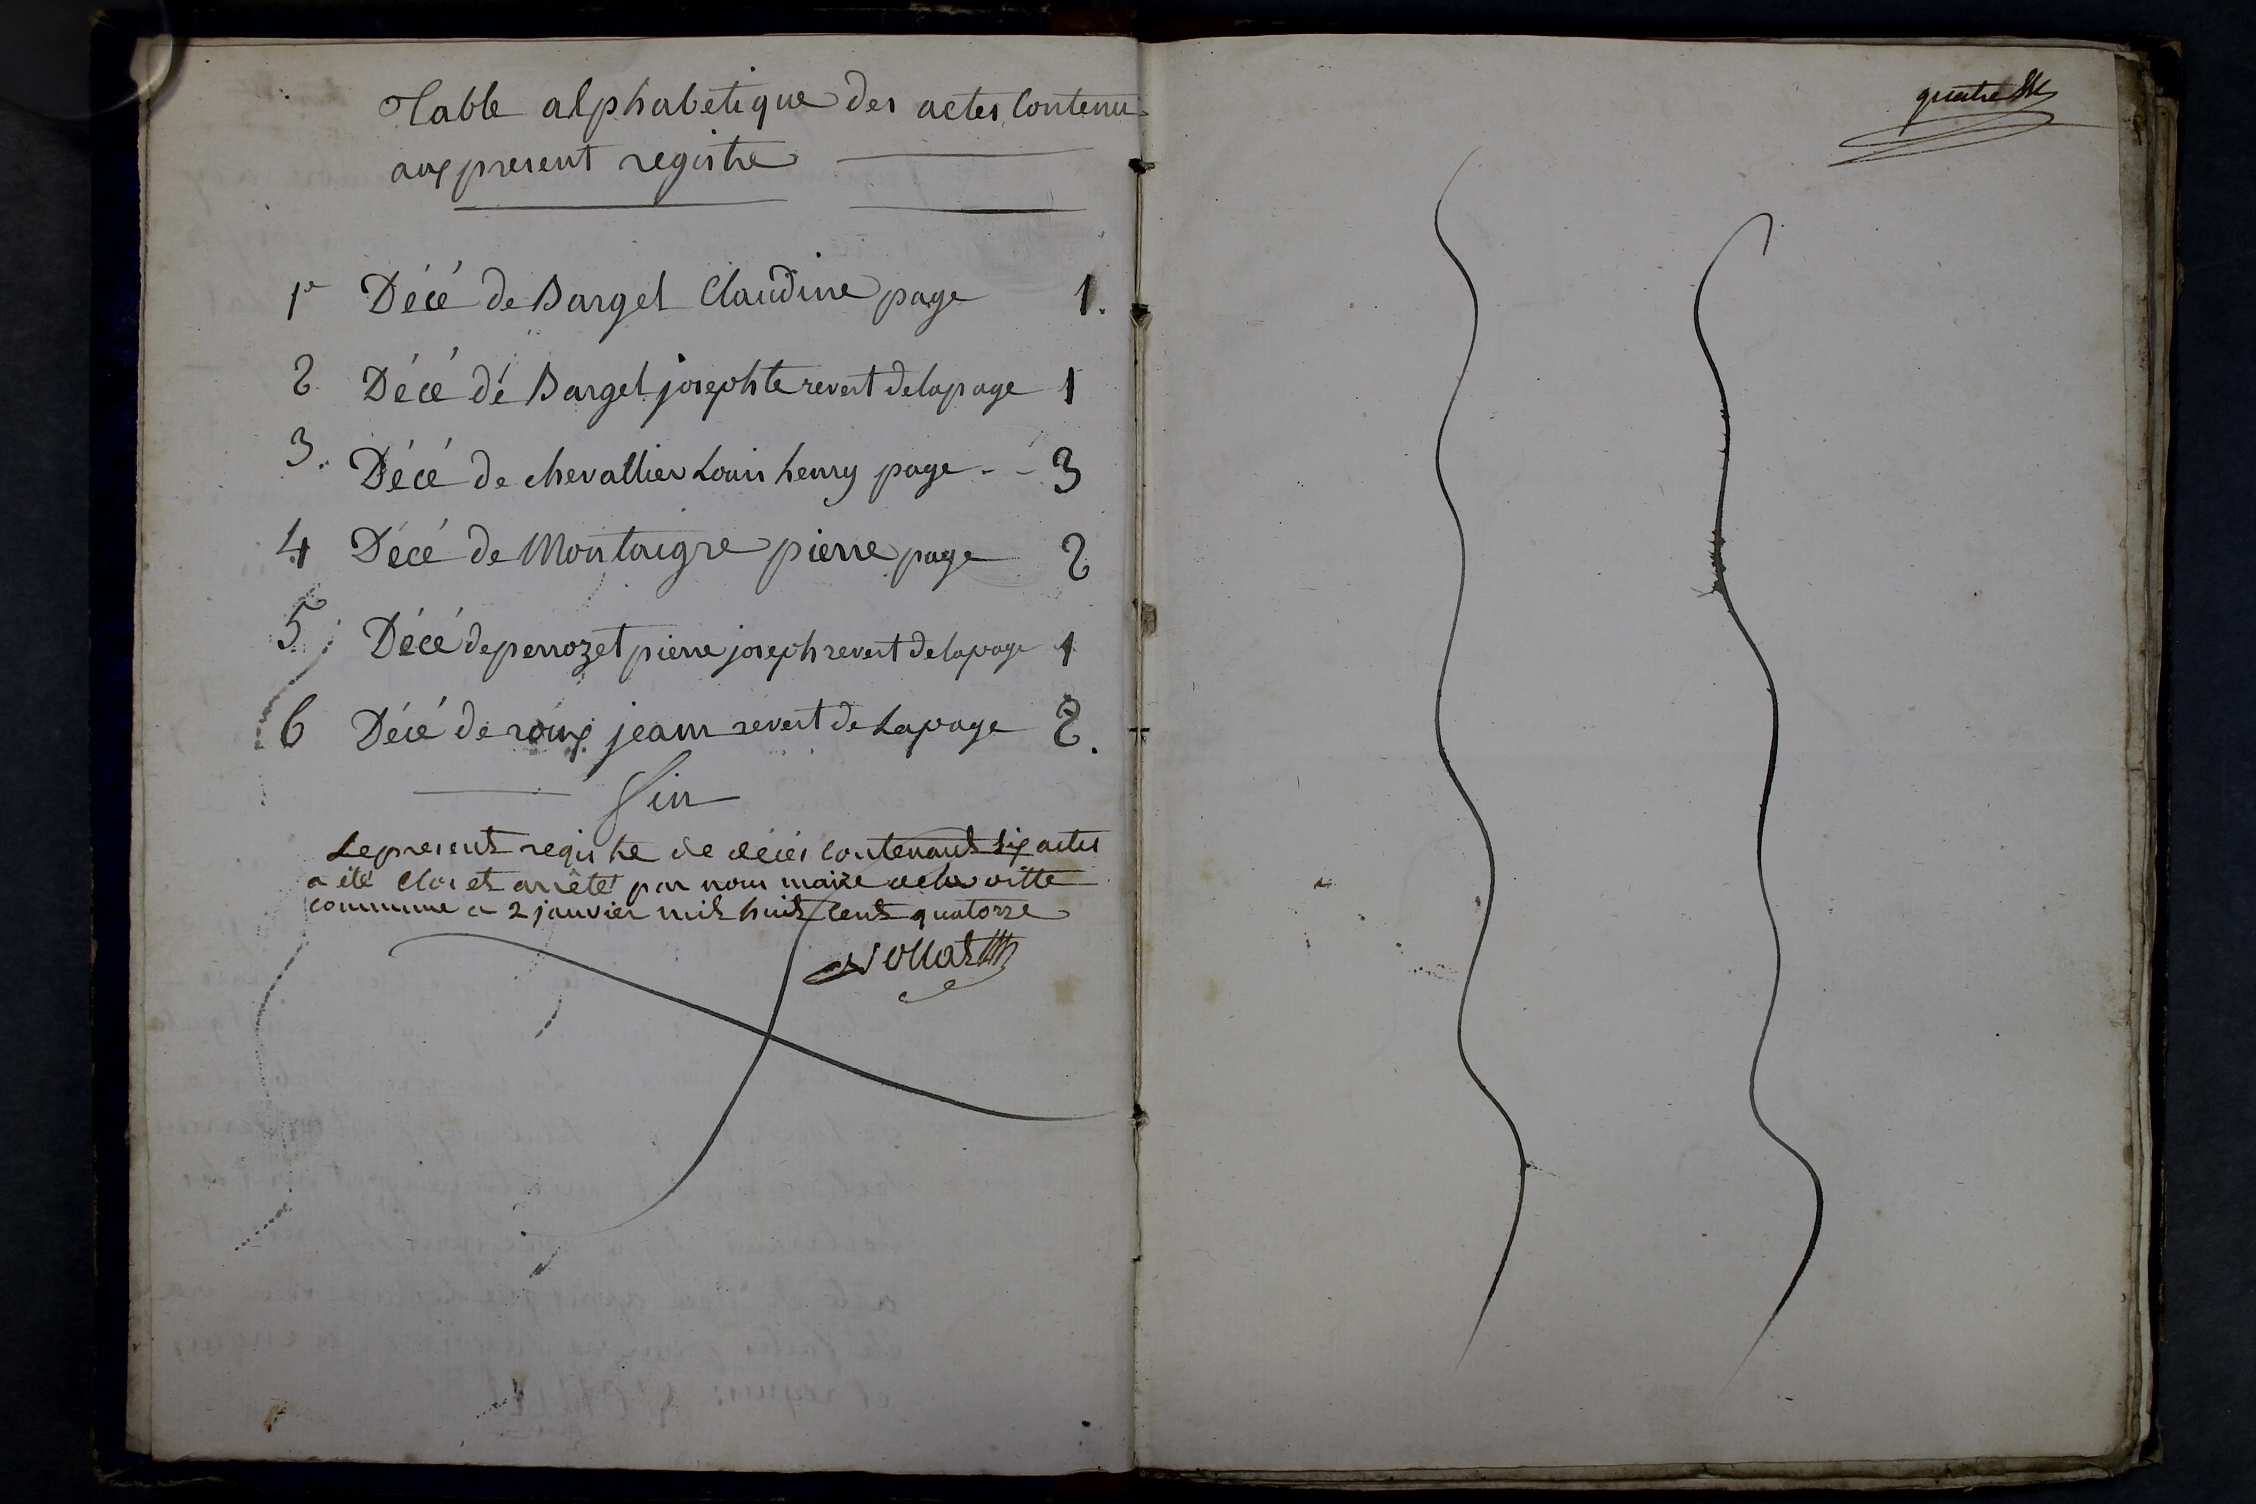 Table alphabetique des actes Contenu
aux present registre
1e Décé de Barget Claudine page 1.
2 Décé de Barget josephte revert de la page 1
3. Décé de chevallier Louis henry page - - 3
4 Décé de Montaigre pierre page 2
5 Décé de perrozet pierre joseph revert de la page 1
6 Décé de roux jeam revert de La page 2.
fin
Le present registre de décés Contenant Six actes
a été Clos et arrêté par nous maire de la ditte
commune ce 2 janvier mil huit Cent quatorze
quatre